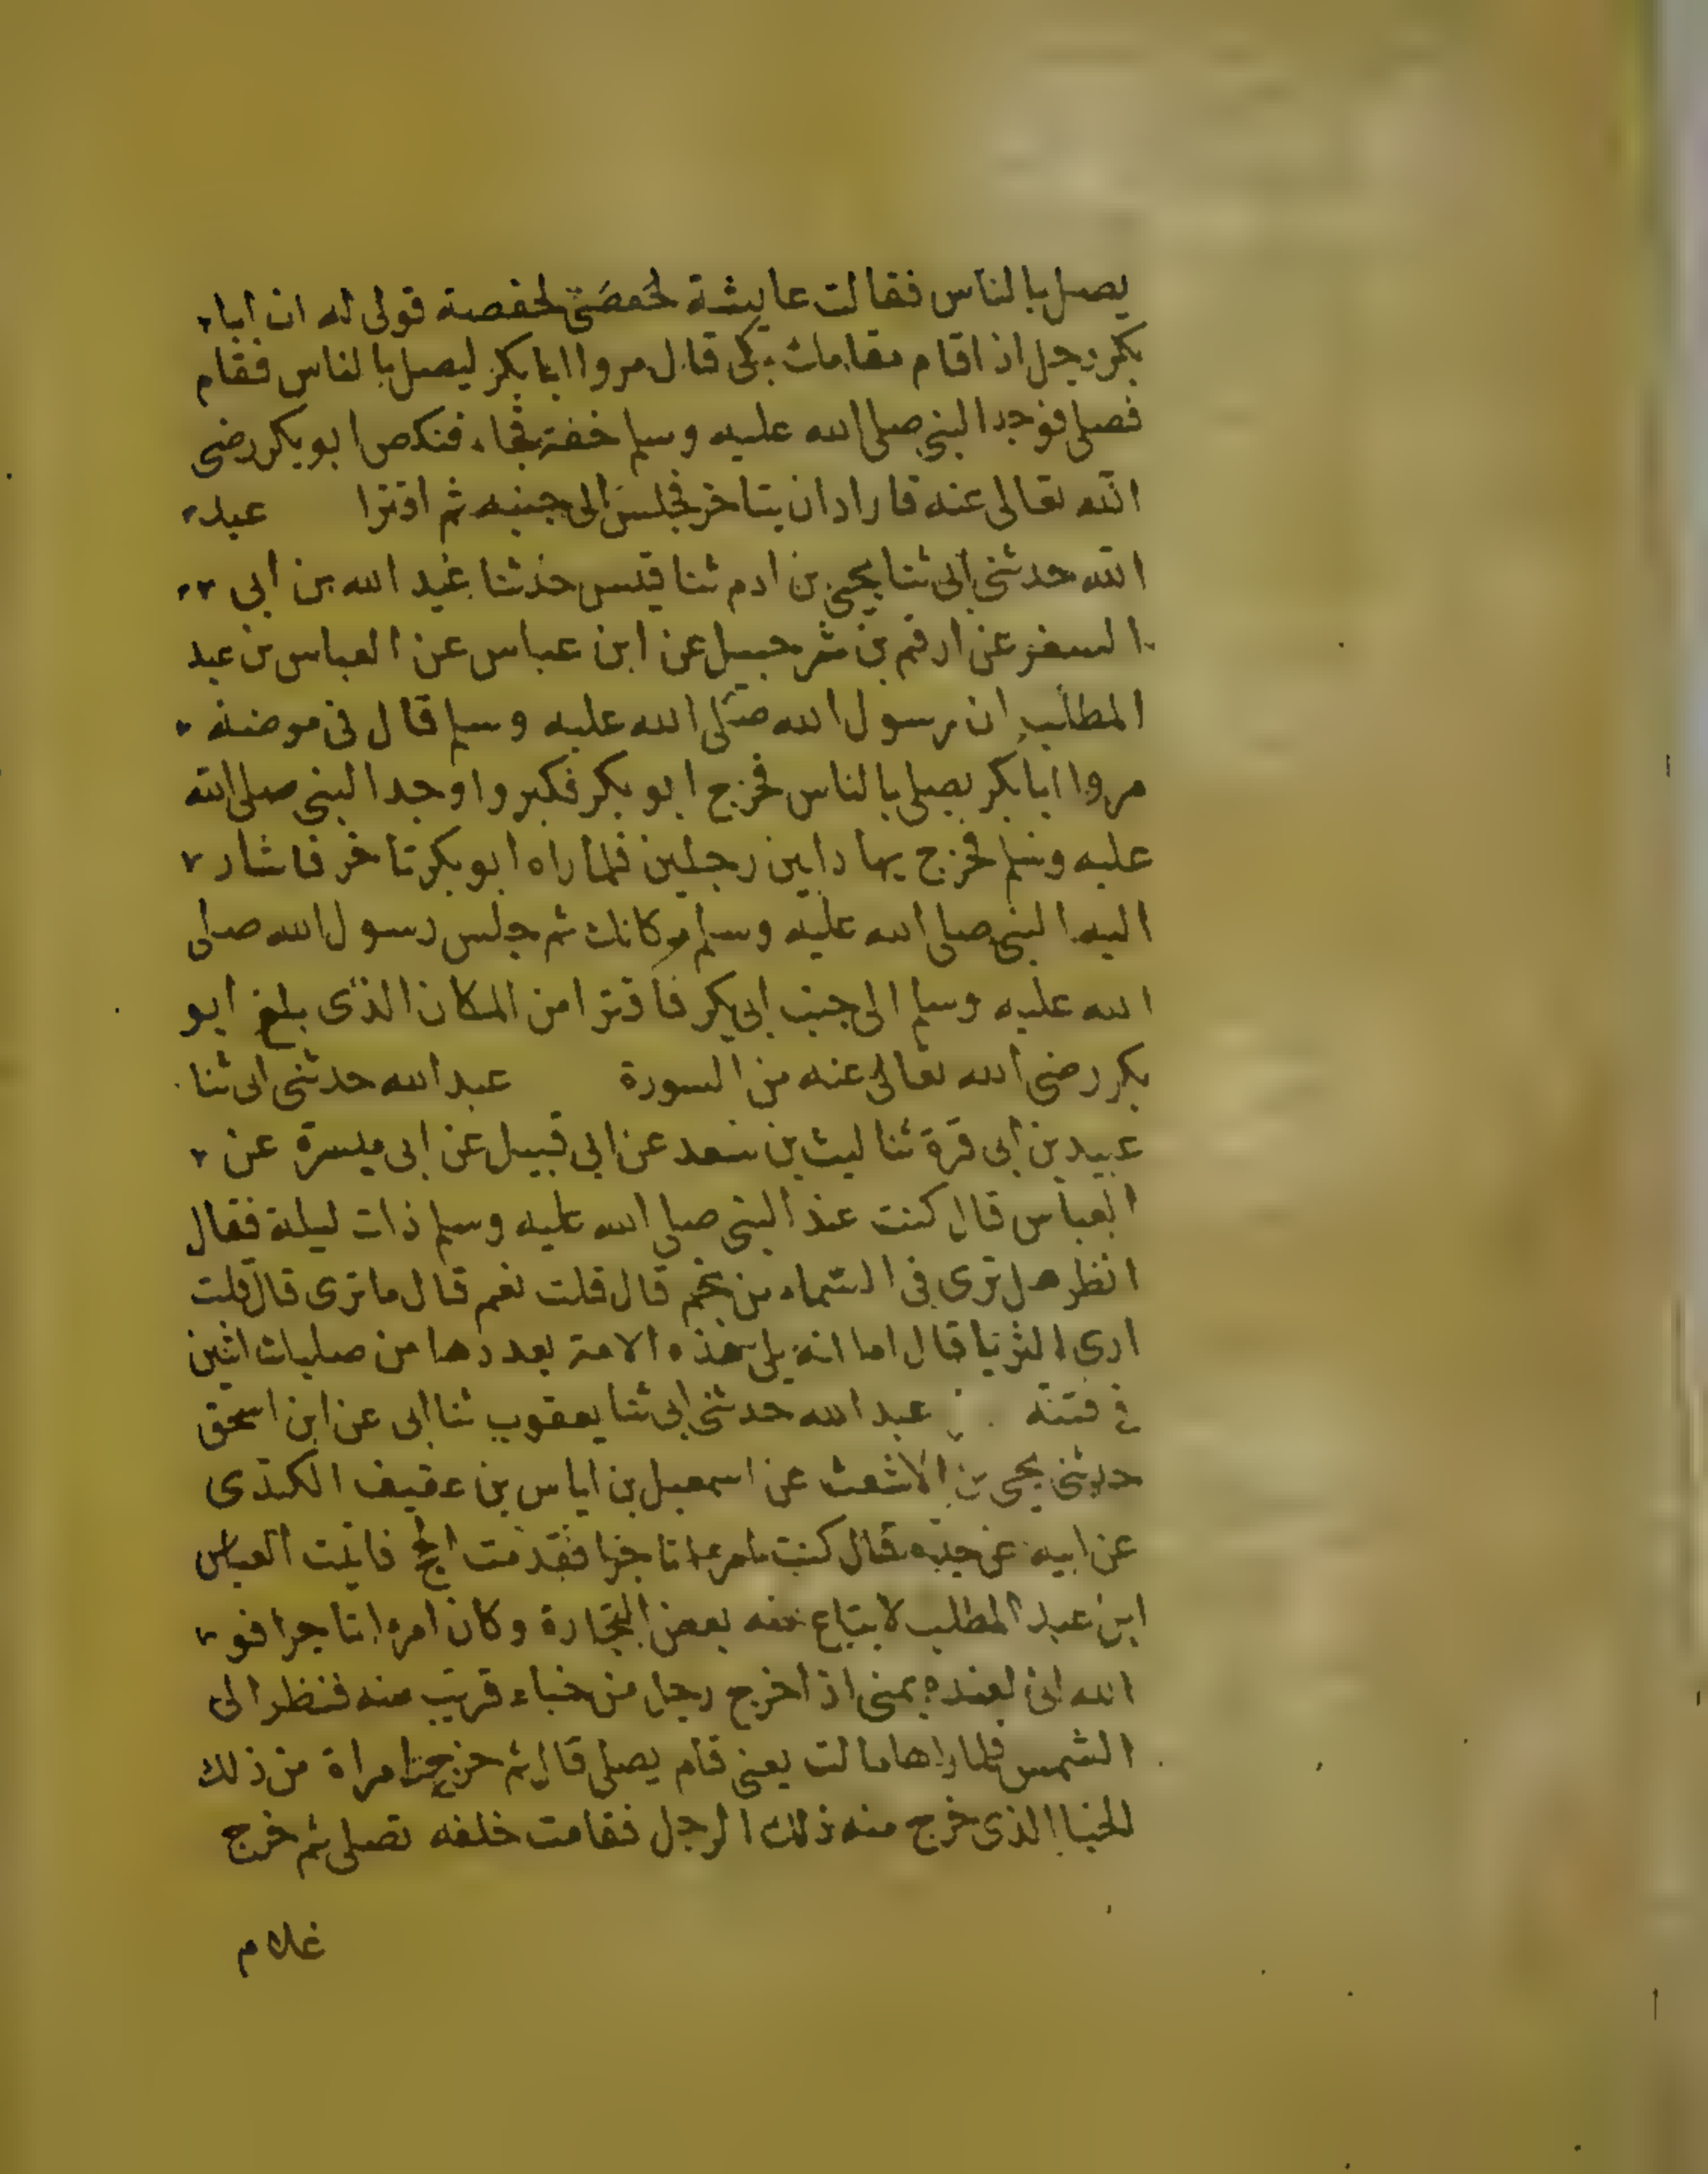 يصل بالناس فقالت عايشة لحفصة قولى له ان ابا
بكر رجل اذا قام مقامك بكى قال مروا ابا بكر ليصل بالناس فقام
فصلى فوجد النبى صلى الله عليه وسلم خفة فجاء فنكص ابو بكر رضى
الله تعالى عنه فاراد ان يتاخر فجلس الى جنبه ثم اقترا عبد
الله حدثنى ابى ثنا يحيى بن ادم ثنا قيس حدثنا عبد الله بن ابى
السفر عن ارقم بن شرحبيل عن ابن عباس عن العباس بن عبد
المطلب ان رسول الله صلى الله عليه وسلم قال فى مرضه
مروا ابا بكر يصلى بالناس فخرج ابو بكر فكبر واوجد النبى صلى الله
عليه وسلم فخرج يهادا بين رجلين فلما راه ابو بكر تاخر فاشار
اليه النبى صلى الله عليه وسلم مكانك ثم جلس رسول الله صلى
الله عليه وسلم الى جنب ابى بكر فاقترا من المكان الذى بلغ ابو
بكر رضى الله تعالى عنه من السورة عبد الله حدثنى ابى ثنا
عبيد بن ابى قرة ثنا ليث بن سعد عن ابى قبيل عن ابى ميسرة عن
العباس قال كنت عند النبى صلى الله عليه وسلم ذات ليلة فقال
انظر هل ترى فى السماء من نجم قال قلت نعم قال ما ترى قال قلت
ارى الثريا قال اما انه يلى هذه الامة بعددها من صلبك اثنين
فى فتنة عبد الله حدثنى ابى ثنا يعقوب ثنا ابى عن ابن اسحق
حدثنى يحيى بن الاشعث عن اسمعيل بن اياس بن عفيف الكندى
عن ابيه عن جده قال كنت امرءا تاجرا فقدمت الحج فاتيت العباس
ابن عبد المطلب لابتاع منه بعض التجارة وكان امرءا تاجرا فو
الله انى لعنده بمنى اذا خرج رجل من خباء قريب منه فنظر الى
الشمس فلما راها مالت يعنى قام يصلى قال ثم خرجت امراة من ذلك
الخبا الذى خرج منه ذلك الرجل فقامت خلفه تصلى ثم خرج
غلام